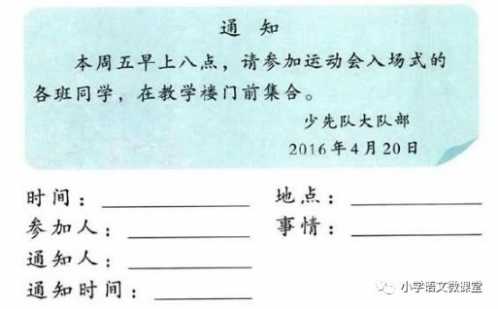 通知
本周五早上八点，请参加运动会入场式的
各班同学，在教学楼门前集合。
少先队大队部
2016年4月20日
时间：
地点：
参加人：
事情：
通知人：
通知时间：
小学语文微课堂